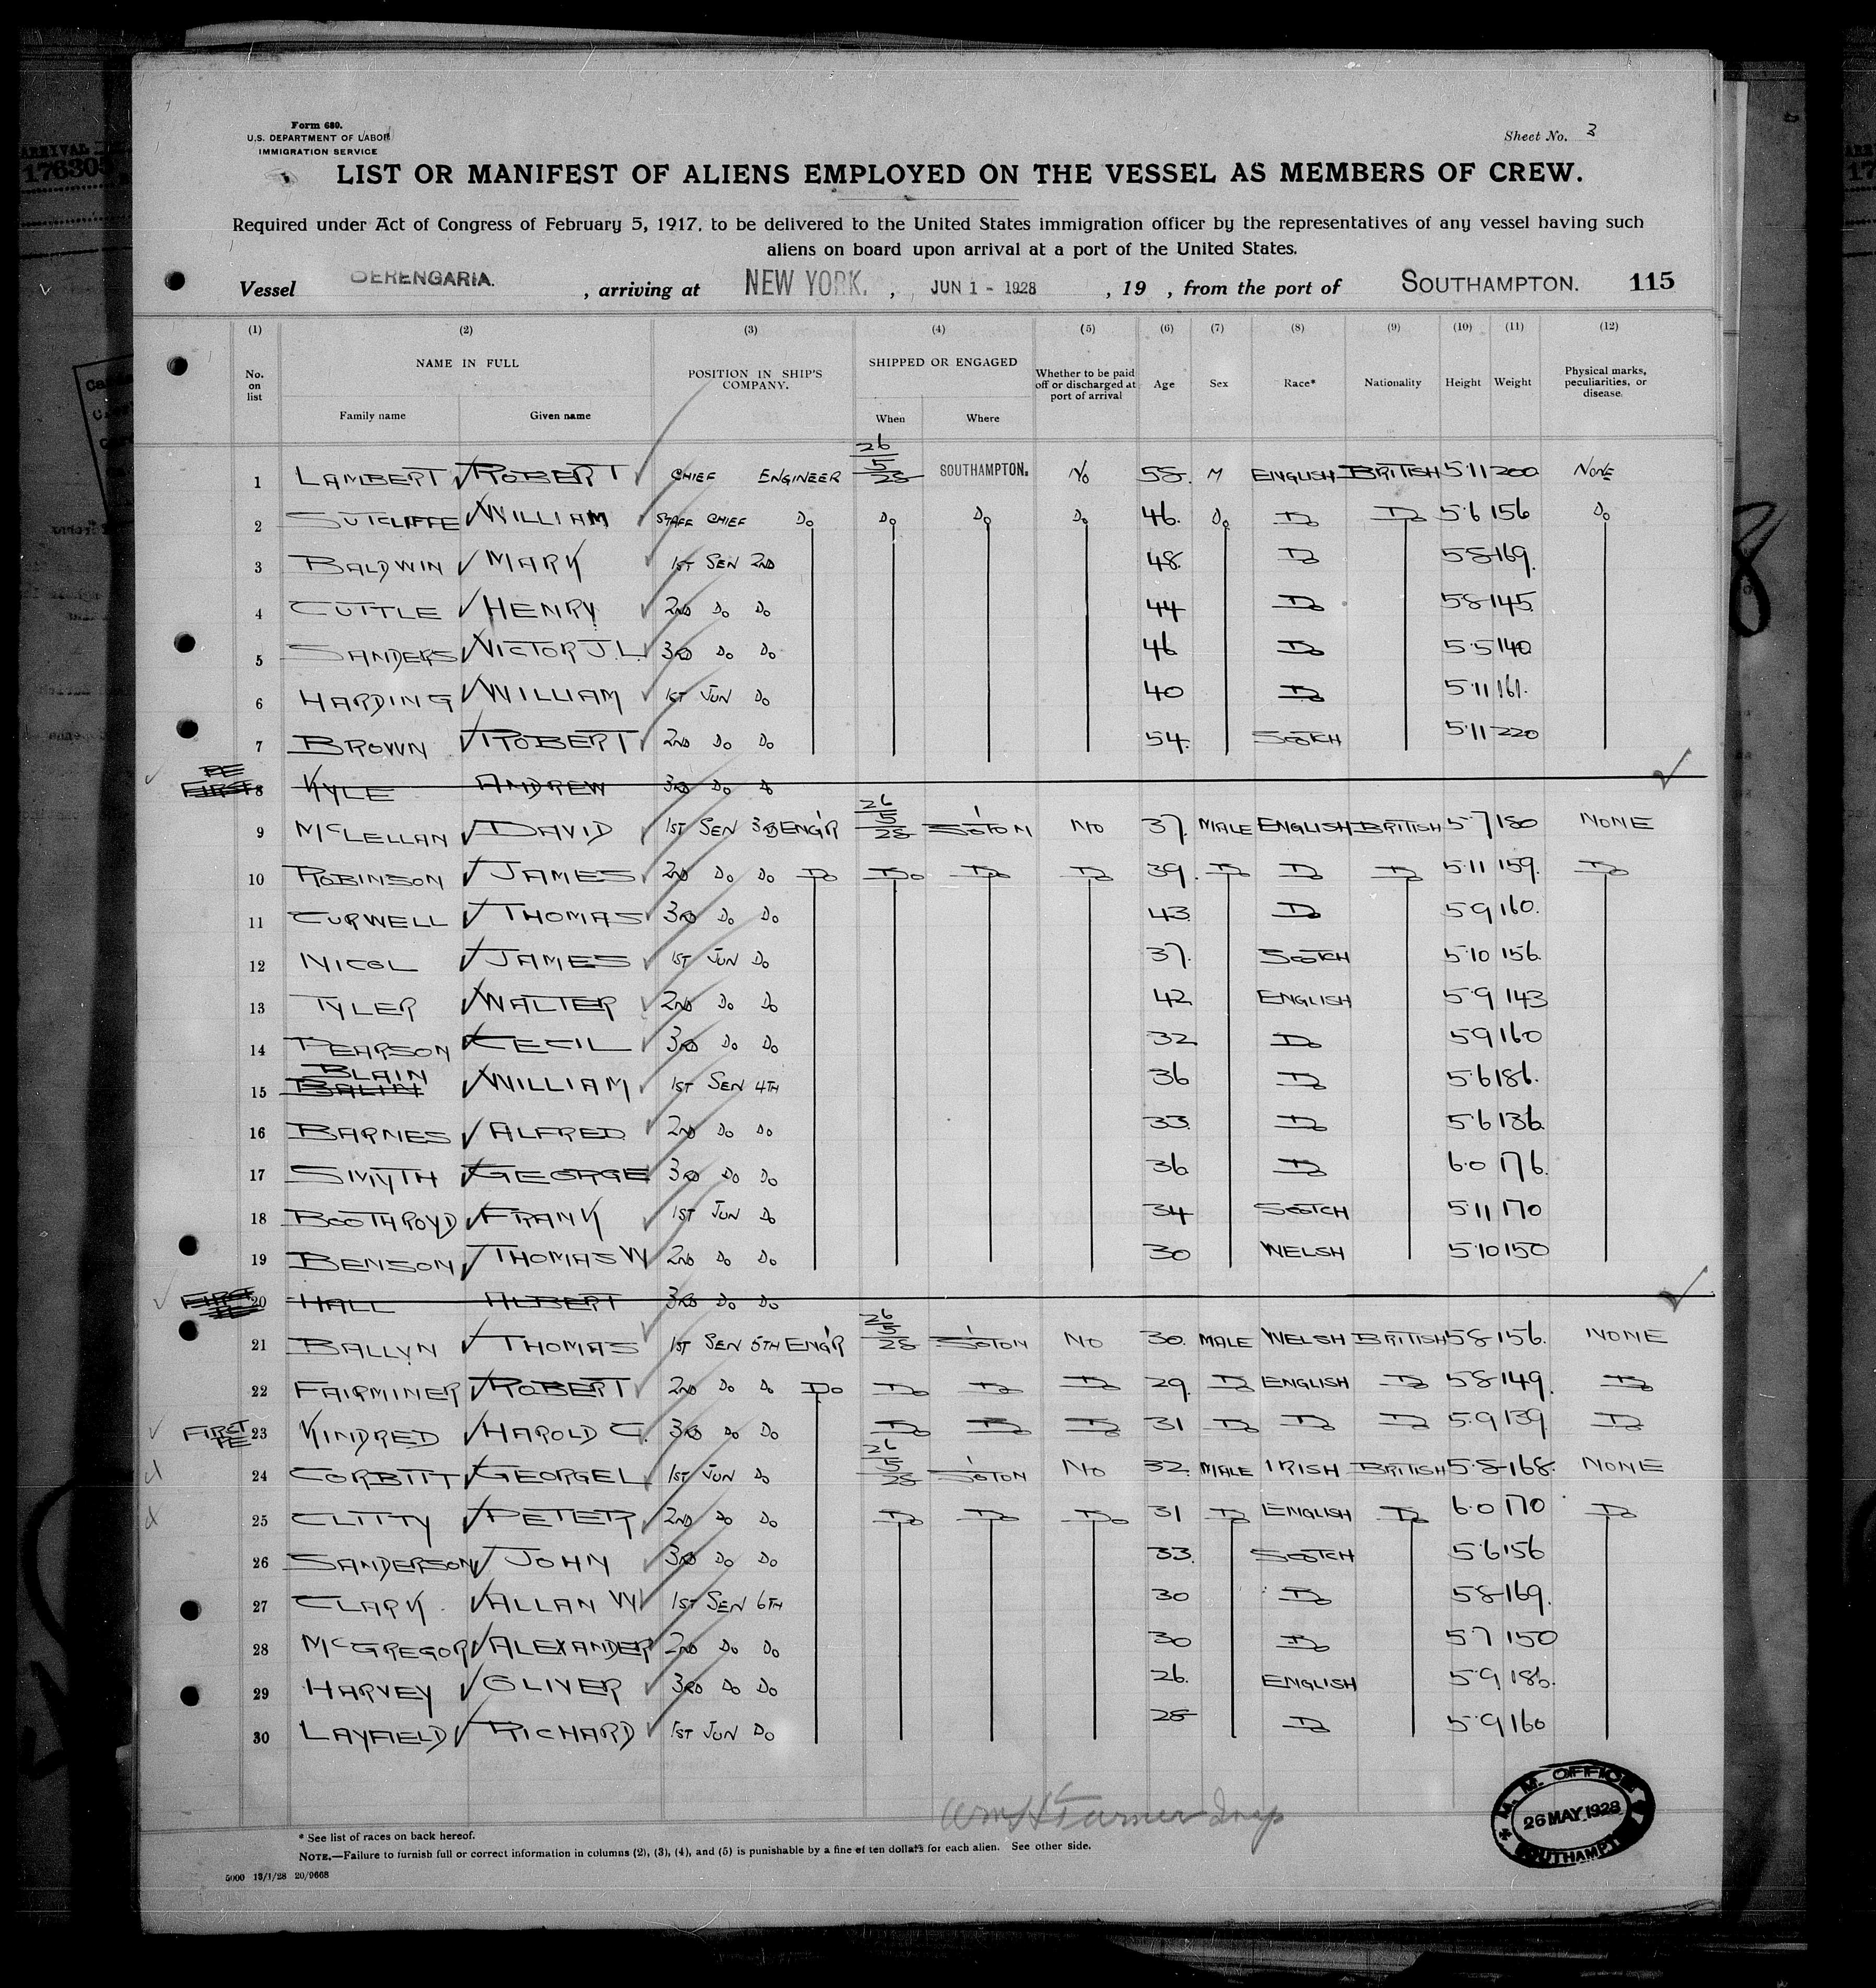 Form 680.
U.S. DEPARTMENT OF LABOR
IMMIGRATION SERVICE
Sheet No. 3
LIST OR MANIFEST OF ALIENS EMPLOYED ON THE VESSEL AS MEMBERS OF CREW.
Required under Act of Congress of February 5, 1917, to be delivered to the United States immigration officer by the representatives of any vessel having such
aliens on board upon arrival at a port of the United States.
Vessel BERENGARIA. , arriving at NEW YORK. , JUN 1 - 1928 , 19 , from the port of SOUTHAMPTON. 115
(1) (2) (3) (4) (5) (6) (7) (8) (9) (10) (11) (12)
No. on list NAME IN FULL Family name Given name POSITION IN SHIP'S COMPANY. SHIPPED OR ENGAGED When Where Whether to be paid off or discharged at port of arrival Age Sex Race* Nationality Height Weight Physical marks, peculiarities, or disease.
1 LAMBERT ROBERT CHIEF ENGINEER 26/5/28 SOUTHAMPTON. No 58. M ENGLISH BRITISH 5.11 200 NONE
2 SUTCLIFFE WILLIAM STAFF CHIEF Do Do Do Do 46. Do Do Do 5.6 156 Do
3 BALDWIN MARK 1ST SEN 2ND 48. Do 5.8 169.
4 CUTTLE HENRY 2ND Do Do 44 Do 5.8 145
5 SANDERS VICTOR J.L. 3RD Do Do 46 Do 5.5 140
6 HARDING WILLIAM 1ST JUN Do 40 Do 5.11 161.
7 BROWN ROBERT 2ND Do Do 54. SCOTCH 5.11 220
PE
FIRST 8 KYLE ANDREW 3RD Do Do
9 McLELLAN DAVID 1ST SEN 3RD ENG'R 26/5/28 S'OTON NO 37. MALE ENGLISH BRITISH 5.7 180 NONE
10 ROBINSON JAMES 2ND Do Do Do Do Do Do 39. Do Do Do 5.11 159. Do
11 CURWELL THOMAS 3RD Do Do 43 Do 5.9 160.
12 NICOL JAMES 1ST JUN Do 37. SCOTCH 5.10 156.
13 TYLER WALTER 2ND Do Do 42 ENGLISH 5.9 143
14 PEARSON CECIL 3RD Do Do 32 Do 5.9 160
BLAIN
15 BALIN WILLIAM 1ST SEN 4TH 36 Do 5.6 186.
16 BARNES ALFRED 2ND Do Do 33 Do 5.6 136
17 SMYTH GEORGE 3RD Do Do 36 Do 6.0 176.
18 BOOTHROYD FRANK 1ST JUN Do 34 SCOTCH 5.11 170
19 BENSON THOMAS W 2ND Do Do 30 WELSH 5.10 150
FIRST 20 HALL ALBERT 3RD Do Do
PE
21 BALLYN THOMAS 1ST SEN 5TH ENG'R 26/5/28 S'OTON NO 30. MALE WELSH BRITISH 5.8 156. NONE
22 FAIRMINER ROBERT 2ND Do Do Do Do Do Do 29. Do ENGLISH Do 5.8 149. Do
FIRST PE 23 KINDRED HAROLD C. 3RD Do Do Do Do Do 31 Do Do Do 5.9 139 Do
24 CORBITT GEORGE L 1ST JUN Do 26/5/28 S'OTON NO 32 MALE IRISH BRITISH 5.8 168. NONE
25 CLITTY PETER 2ND Do Do Do Do Do 31 Do ENGLISH Do 6.0 170 Do
26 SANDERSON JOHN 3RD Do Do 33. SCOTCH 5.6 156
27 CLARK. ALLAN W 1ST SEN 6TH 30 Do 5.8 169.
28 McGREGOR ALEXANDER 2ND Do Do 30 Do 5.7 150
29 HARVEY OLIVER 3RD Do Do 26. ENGLISH 5.9 186.
30 LAYFIELD RICHARD 1ST JUN Do 28 Do 5.9 160
Wm H Turner Insp
M. M. OFFICE
26 MAY 1928
SOUTHAMPTON
* See list of races on back hereof.
NOTE.—Failure to furnish full or correct information in columns (2), (3), (4), and (5) is punishable by a fine of ten dollars for each alien. See other side.
5000 13/1/28 20/9668
ARRIVAL
176305